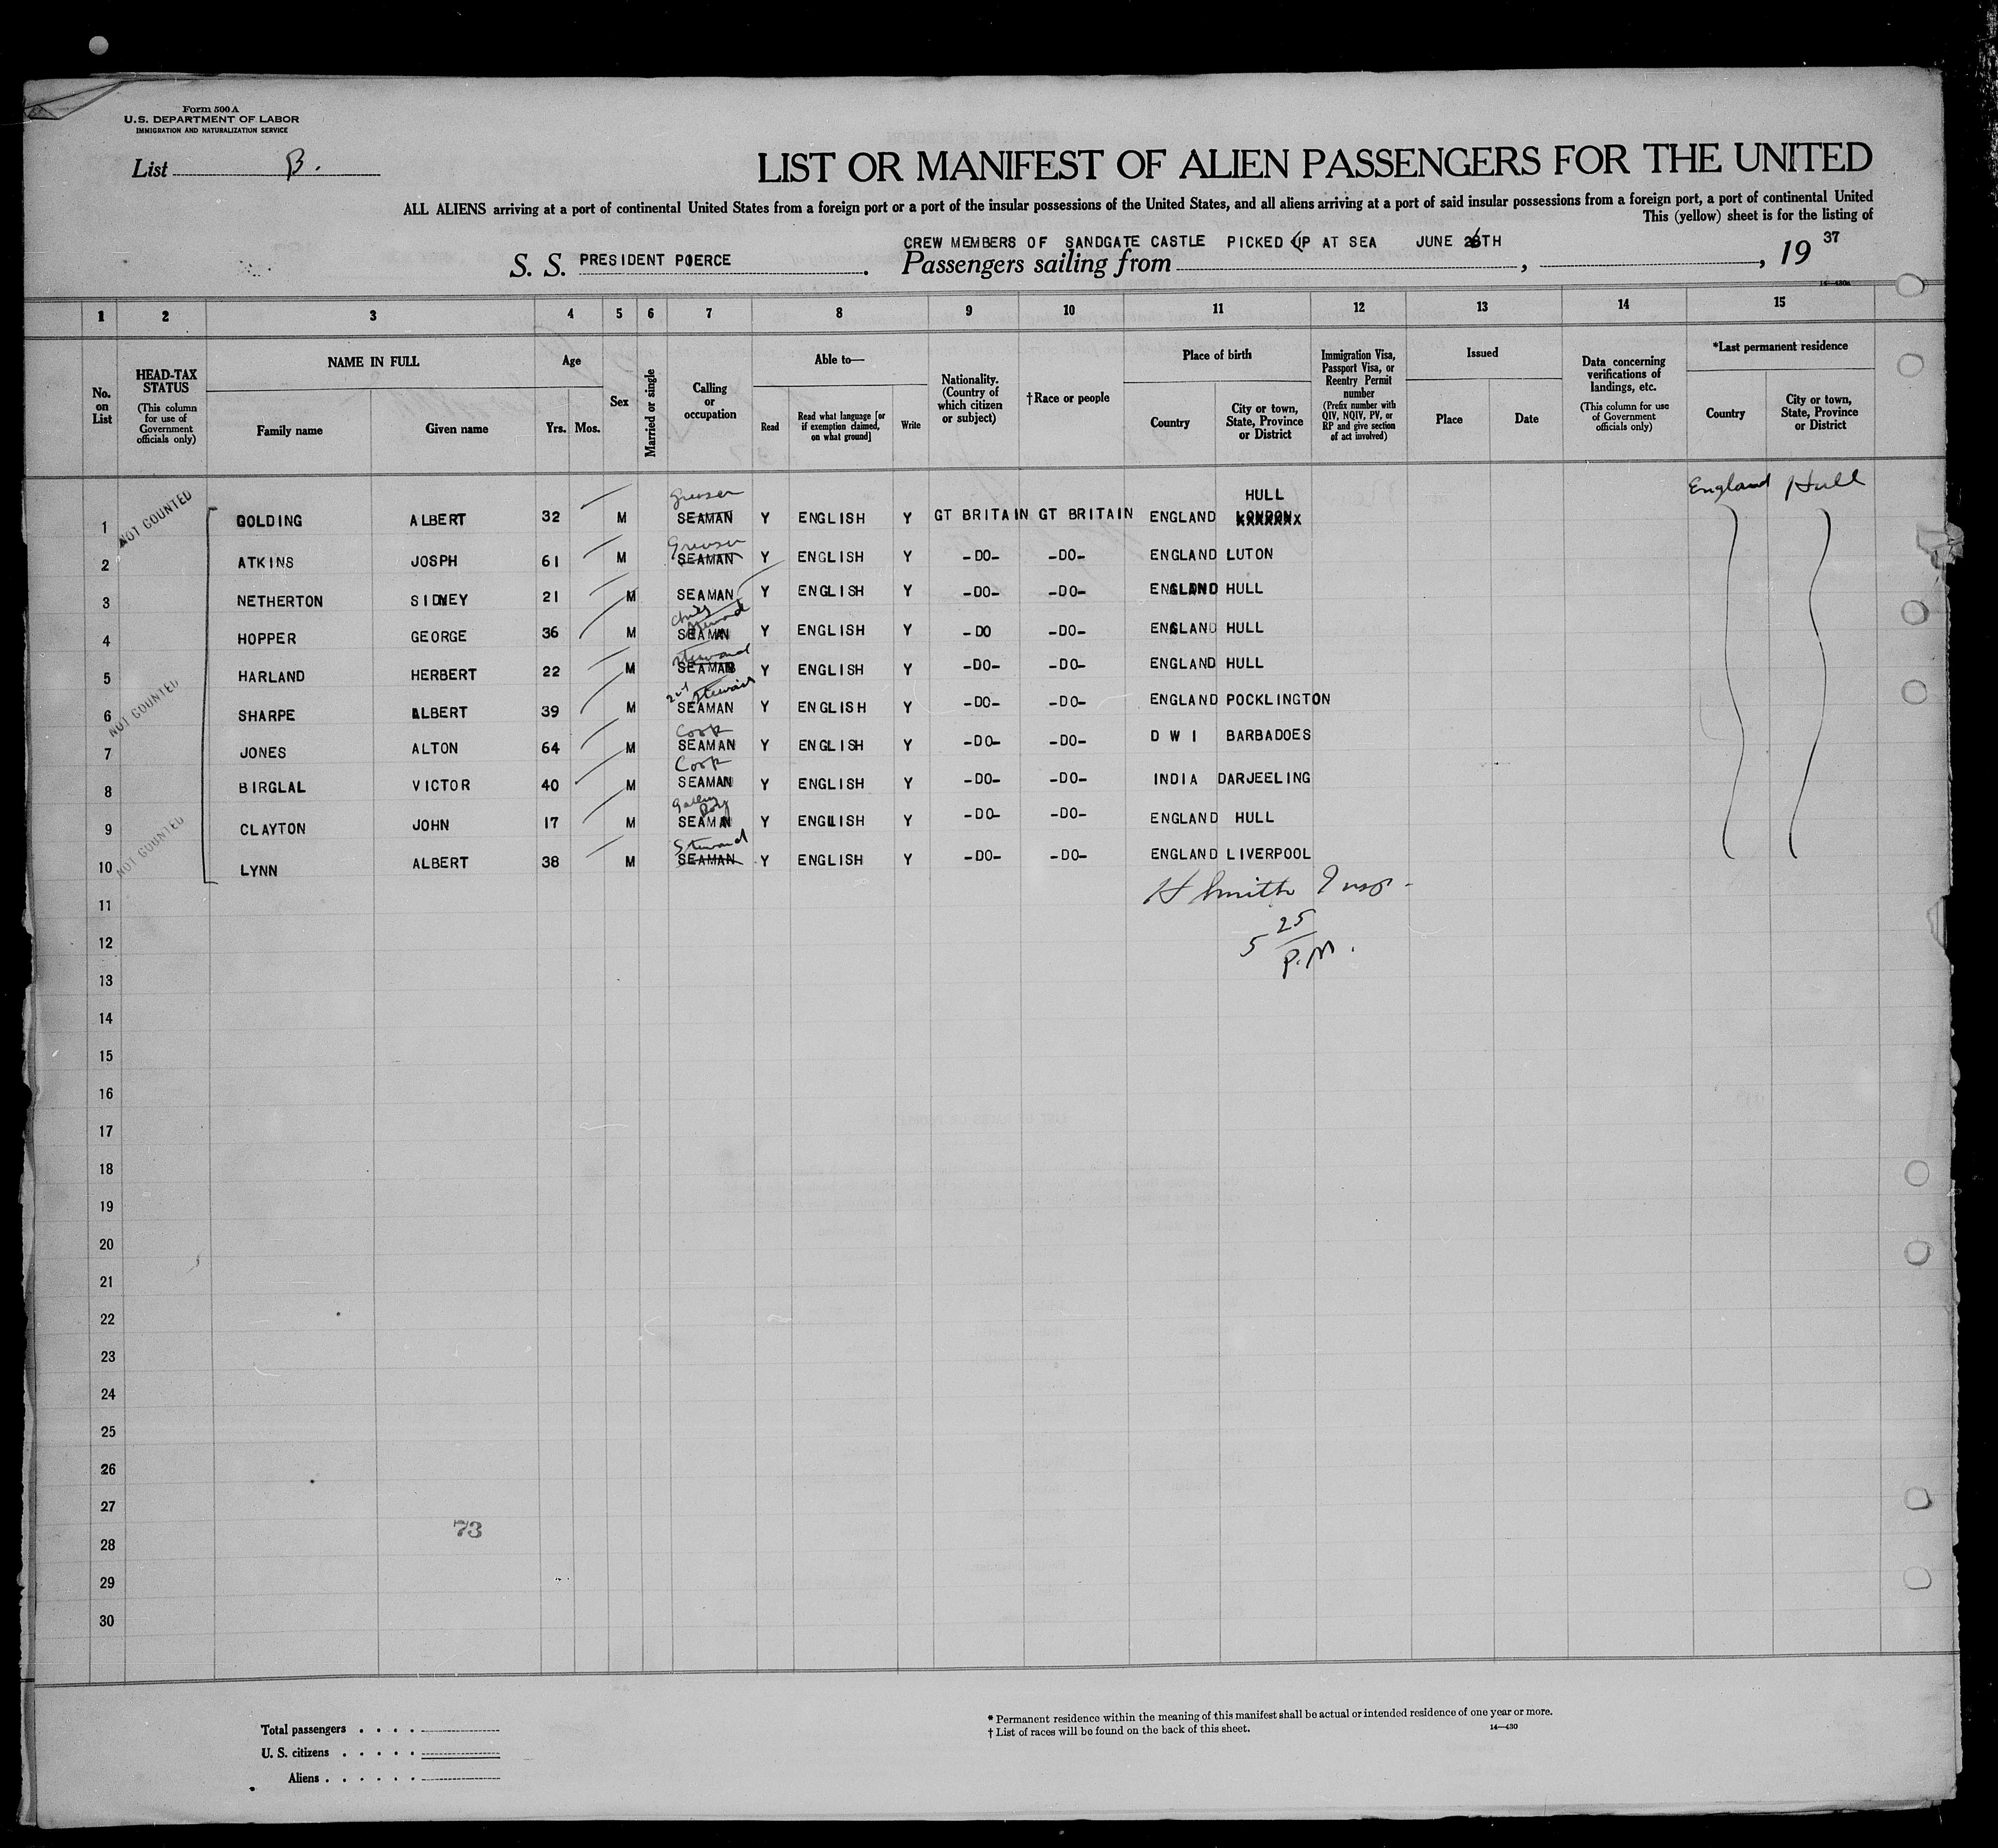 Form 500 A
U.S. DEPARTMENT OF LABOR
IMMIGRATION AND NATURALIZATION SERVICE
List B.
LIST OR MANIFEST OF ALIEN PASSENGERS FOR THE UNITED
ALL ALIENS arriving at a port of continental United States from a foreign port or a port of the insular possessions of the United States, and all aliens arriving at a port of said insular possessions from a foreign port, a port of continental United
This (yellow) sheet is for the listing of
CREW MEMBERS OF SANDGATE CASTLE PICKED UP AT SEA JUNE 26TH
S. S. PRESIDENT PIERCE . Passengers sailing from , , 19 37
14—430a
1 2 3 4 5 6 7 8 9 10 11 12 13 14 15
No. on List
HEAD-TAX STATUS
(This column for use of Government officials only)
NAME IN FULL
Family name Given name
Age
Yrs. Mos.
Sex
Married or single
Calling or occupation
Able to—
Read Read what language [or if exemption claimed, on what ground] Write
Nationality. (Country of which citizen or subject)
†Race or people
Place of birth
Country City or town, State, Province or District
Immigration Visa, Passport Visa, or Reentry Permit number
(Prefix number with QIV, NQIV, PV, or RP and give section of act involved)
Issued
Place Date
Data concerning verifications of landings, etc.
(This column for use of Government officials only)
*Last permanent residence
Country City or town, State, Province or District
NOT COUNTED
greaser HULL England Hull
1 GOLDING ALBERT 32 M SEAMAN Y ENGLISH Y GT BRITAIN GT BRITAIN ENGLAND LONDON
Greaser
2 ATKINS JOSPH 61 M SEAMAN Y ENGLISH Y -DO- -DO- ENGLAND LUTON
3 NETHERTON SIDNEY 21 M SEAMAN Y ENGLISH Y -DO- -DO- ENGLAND HULL
Chief Steward
4 HOPPER GEORGE 36 M SEAMAN Y ENGLISH Y -DO -DO- ENGLAND HULL
Steward
5 HARLAND HERBERT 22 M SEAMAN Y ENGLISH Y -DO- -DO- ENGLAND HULL
NOT COUNTED
2nd Steward
6 SHARPE ALBERT 39 M SEAMAN Y ENGLISH Y -DO- -DO- ENGLAND POCKLINGTON
Cook
7 JONES ALTON 64 M SEAMAN Y ENGLISH Y -DO- -DO- D W I BARBADOES
Cook
8 BIRGLAL VICTOR 40 M SEAMAN Y ENGLISH Y -DO- -DO- INDIA DARJEELING
Galley Boy
9 CLAYTON JOHN 17 M SEAMAN Y ENGLISH Y -DO- -DO- ENGLAND HULL
NOT COUNTED
Steward
10 LYNN ALBERT 38 M SEAMAN Y ENGLISH Y -DO- -DO- ENGLAND LIVERPOOL
H Smith Insp-
11
5 25
12
P.M.
13
14
15
16
17
18
19
20
21
22
23
24
25
26
27
73
28
29
30
Total passengers . . . .
U. S. citizens . . . . .
Aliens . . . . . .
* Permanent residence within the meaning of this manifest shall be actual or intended residence of one year or more.
† List of races will be found on the back of this sheet. 14—430